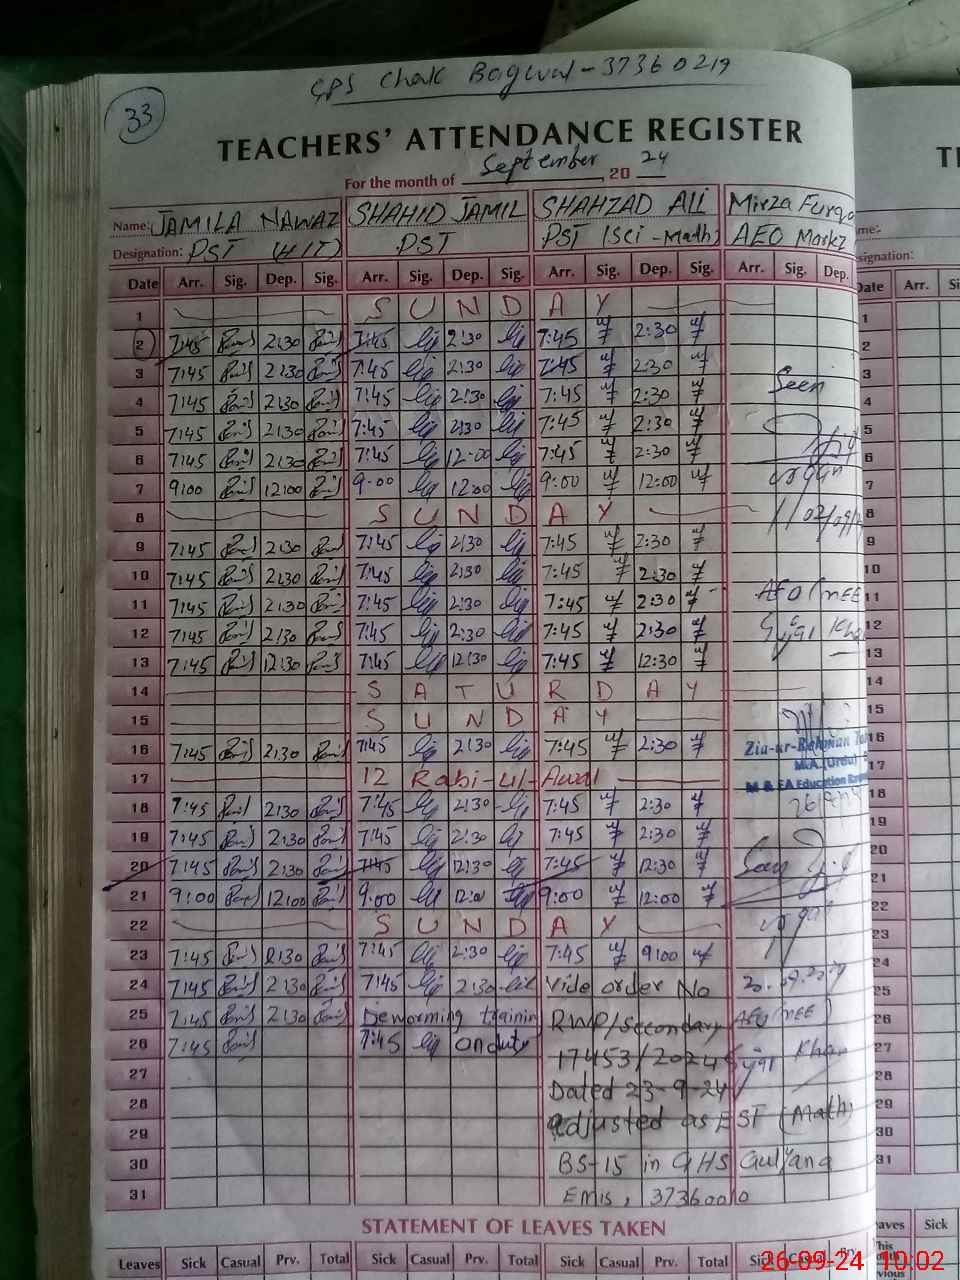 33
GPS Chak Bagwal - 37360219
TEACHERS' ATTENDANCE REGISTER
For the month of September, 20 24
Name: JAMILA NAWAZ SHAHID JAMIL SHAHZAD ALI Mirza Furqa
Designation: PST (HIT) PST PST (Sci-Math) AEO Markz
Date Arr. Sig. Dep. Sig. Arr. Sig. Dep. Sig. Arr. Sig. Dep. Sig. Arr. Sig. Dep.
1 SUNDAY
2 7:45 2:30 7:45 2:30 7:45 2:30
3 7:45 2:30 7:45 2:30 7:45 2:30 Seen
4 7:45 2:30 7:45 2:30 7:45 2:30
5 7:45 2:30 7:45 2:30 7:45 2:30
6 7:45 2:30 7:45 12:00 7:45 2:30
7 9:00 12:00 9:00 12:00 9:00 12:00
8 SUNDAY
9 7:45 2:30 7:45 2:30 7:45 2:30
10 7:45 2:30 7:45 2:30 7:45 2:30
11 7:45 2:30 7:45 2:30 7:45 2:30 AEO (MEE
12 7:45 2:30 7:45 2:30 7:45 2:30
13 7:45 12:30 7:45 12:30 7:45 12:30
14 SATURDAY
15 SUNDAY
16 7:45 2:30 7:45 2:30 7:45 2:30 Zia-ur-Rehman
17 12 Rabi-ul-Awal M.A. (Urdu)
M & EA Education
18 7:45 2:30 7:45 2:30 7:45 2:30
19 7:45 2:30 7:45 2:30 7:45 2:30
20 7:45 2:30 7:45 12:30 7:45 12:30
21 9:00 12:00 9:00 12:00 9:00 12:00
22 SUNDAY
23 7:45 2:30 7:45 2:30 7:45 9:00
24 7:45 2:30 7:45 2:30 Vide order No
25 7:45 2:30 Deworming training RWP/Secondary AEO (MEE)
26 7:45 7:45 on duty 17453/2024 Khan
27 Dated 23-9-24
28 adjusted as EST (Math)
29
30 BS-15 in GHS Gulyana
31 Emis, 37360010
STATEMENT OF LEAVES TAKEN
Leaves Sick Casual Prv. Total Sick Casual Prv. Total Sick Casual Prv. Total Sick Casual Prv.
26-09-24 10:02